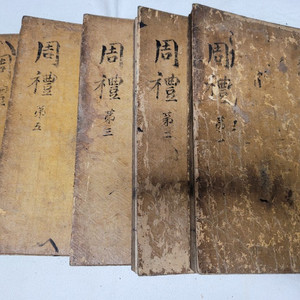 周禮
第一
周禮
第二
周禮
第三
周禮
第五